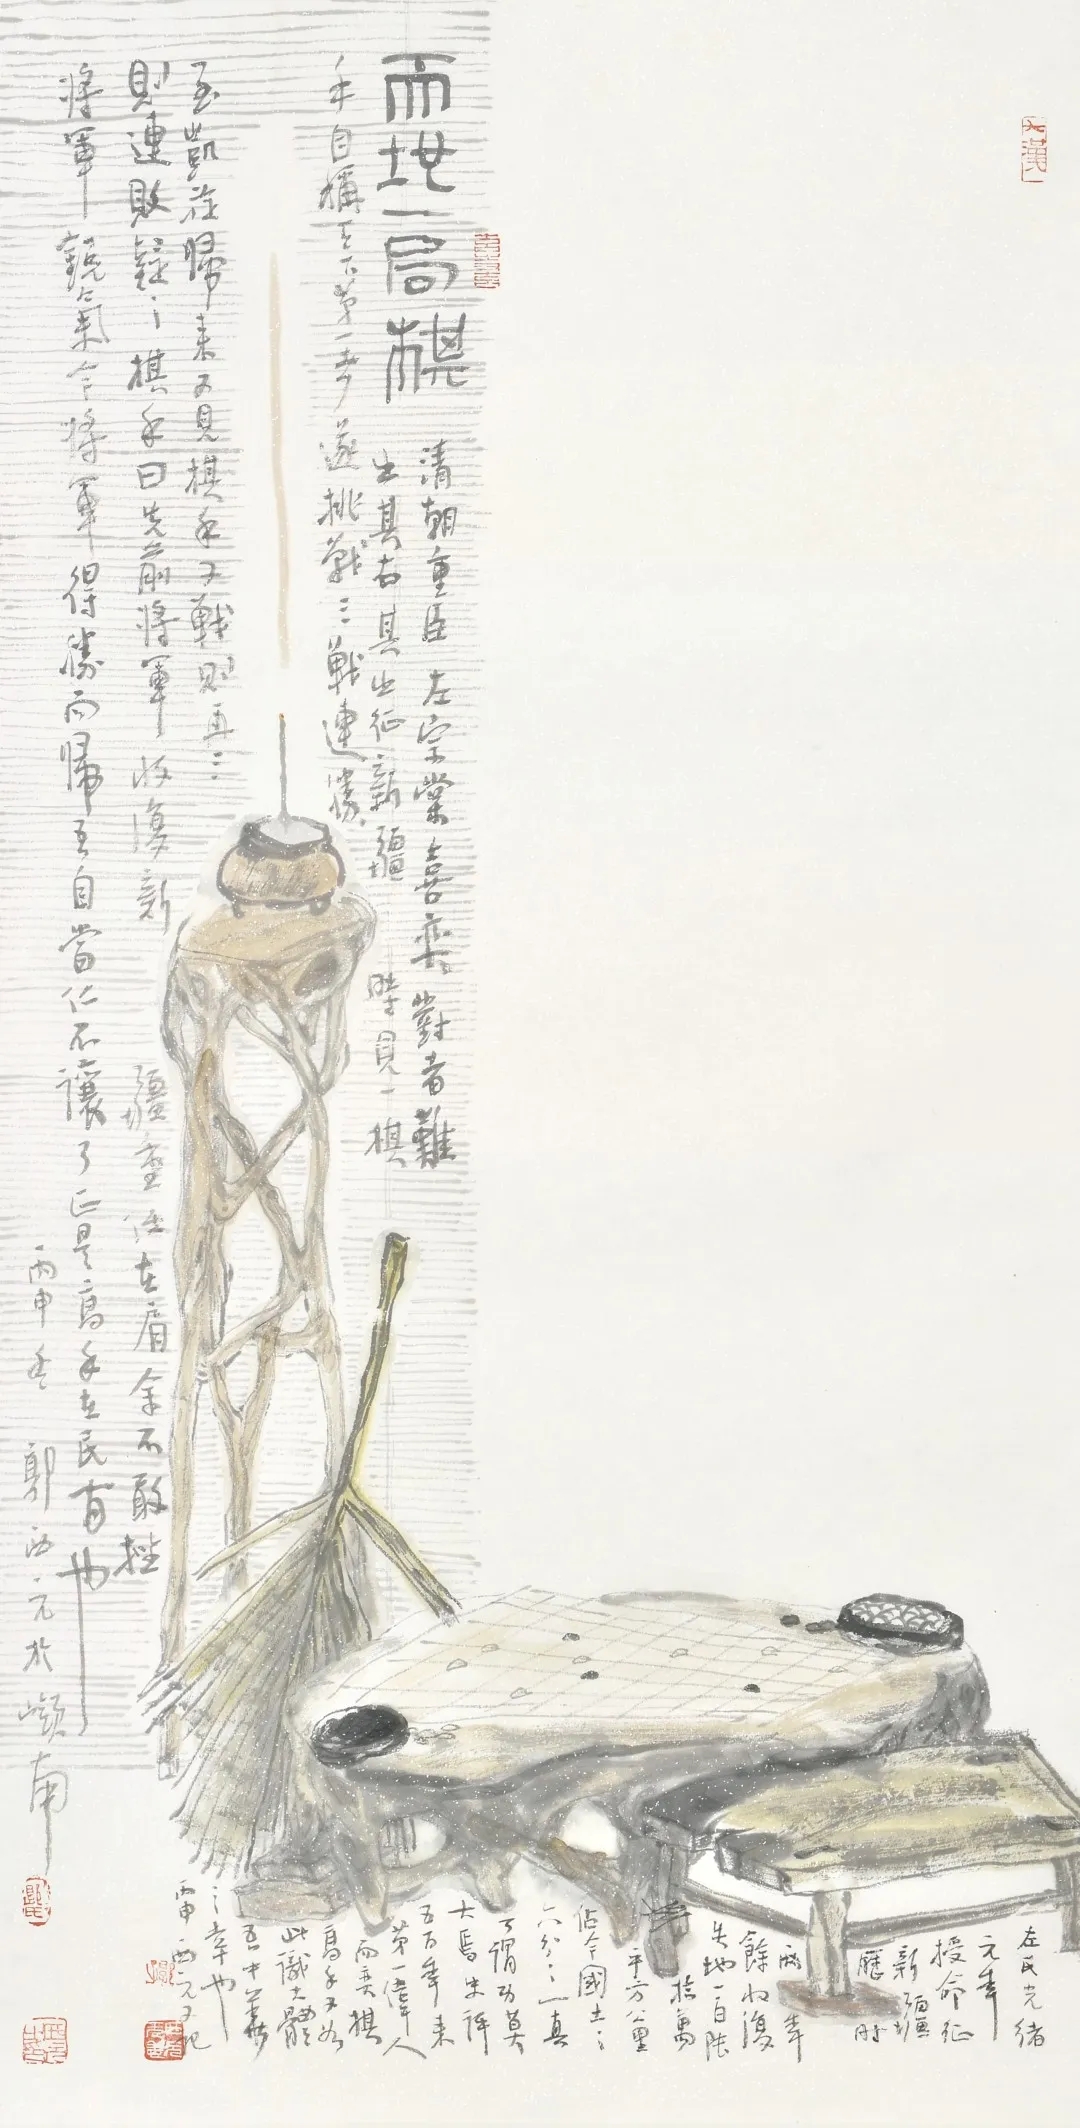 天地一局棋
清朝重臣左宗棠喜弈對者難
出其右其出征新疆時見一棋
手自稱天下第一 遂挑戰三戰連勝
至凱旋歸來又見棋手又戰則再三
則連敗疑之棋手曰先前將軍收復新疆重任在肩余不敢挫
將軍銳氣今將軍得勝而歸吾自當仁不讓了正是高手在民間也
丙申冬郭西元於嶺南
左氏光緒
元年
授命征
新疆
歷時
兩年
餘收復
失地一百陸
拾萬
平方公里
佔今國土之
六分之一真
可謂功莫
大焉史評
五百年來
第一偉人
而弈棋
高手又如
此識大體
吾中華
之幸也
丙申西元又記